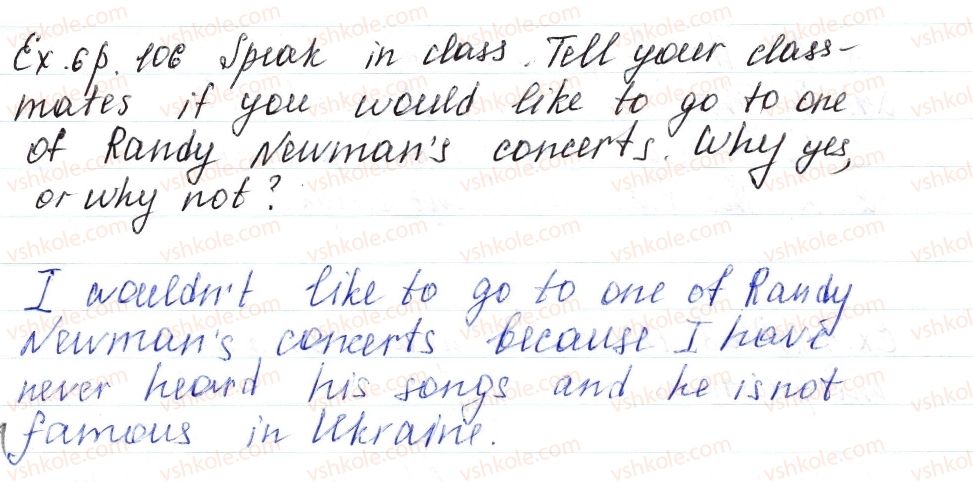 Ex. 6 p. 106 Speak in class. Tell your class-
mates if you would like to go to one
of Randy Newman's concerts. Why yes,
or why not?
I wouldn't like to go to one of Randy
Newman's concerts because I have
never heard his songs and he is not
famous in Ukraine.